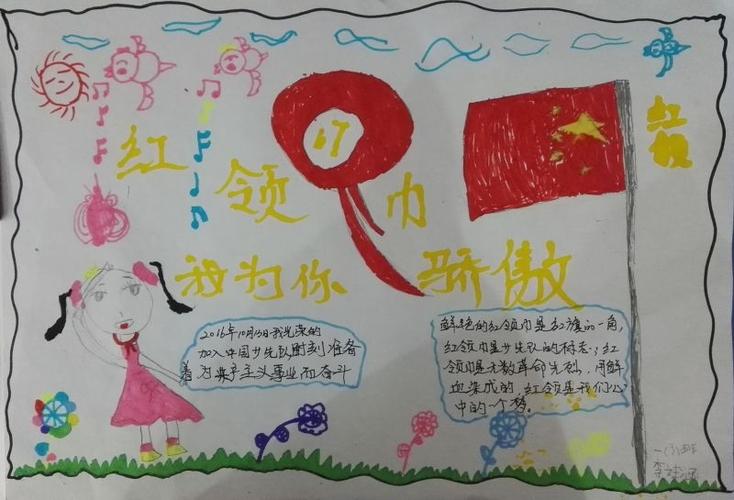 红领巾
我为你骄傲
红领
2016年10月13日我光荣的
加入中国少先队时刻准备
着为共产主义事业而奋斗
鲜艳的红领巾是红旗的一角,
红领巾是少先队的标志,红
领巾是无数革命先烈,用鲜
血染成的,红领是我们心
中的一个梦。